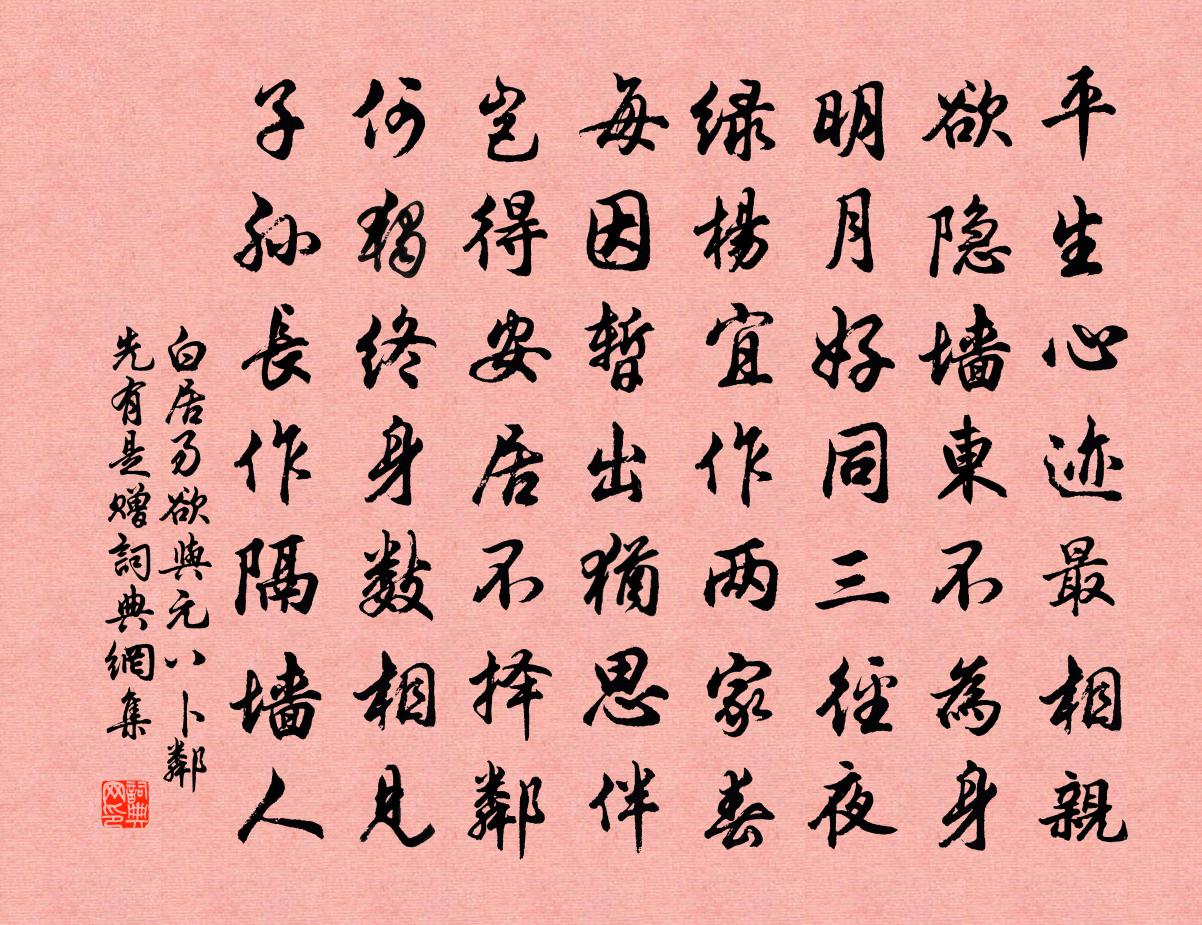 平生心迹最相親
欲隐墙東不為身
明月好同三徑夜
绿楊宜作两家春
每因暫出猶思伴
岂得安居不择鄰
何獨终身數相見
子孙長作隔墙人
白居易欲與元八卜鄰
先有是赠詞典網集
詞典网印